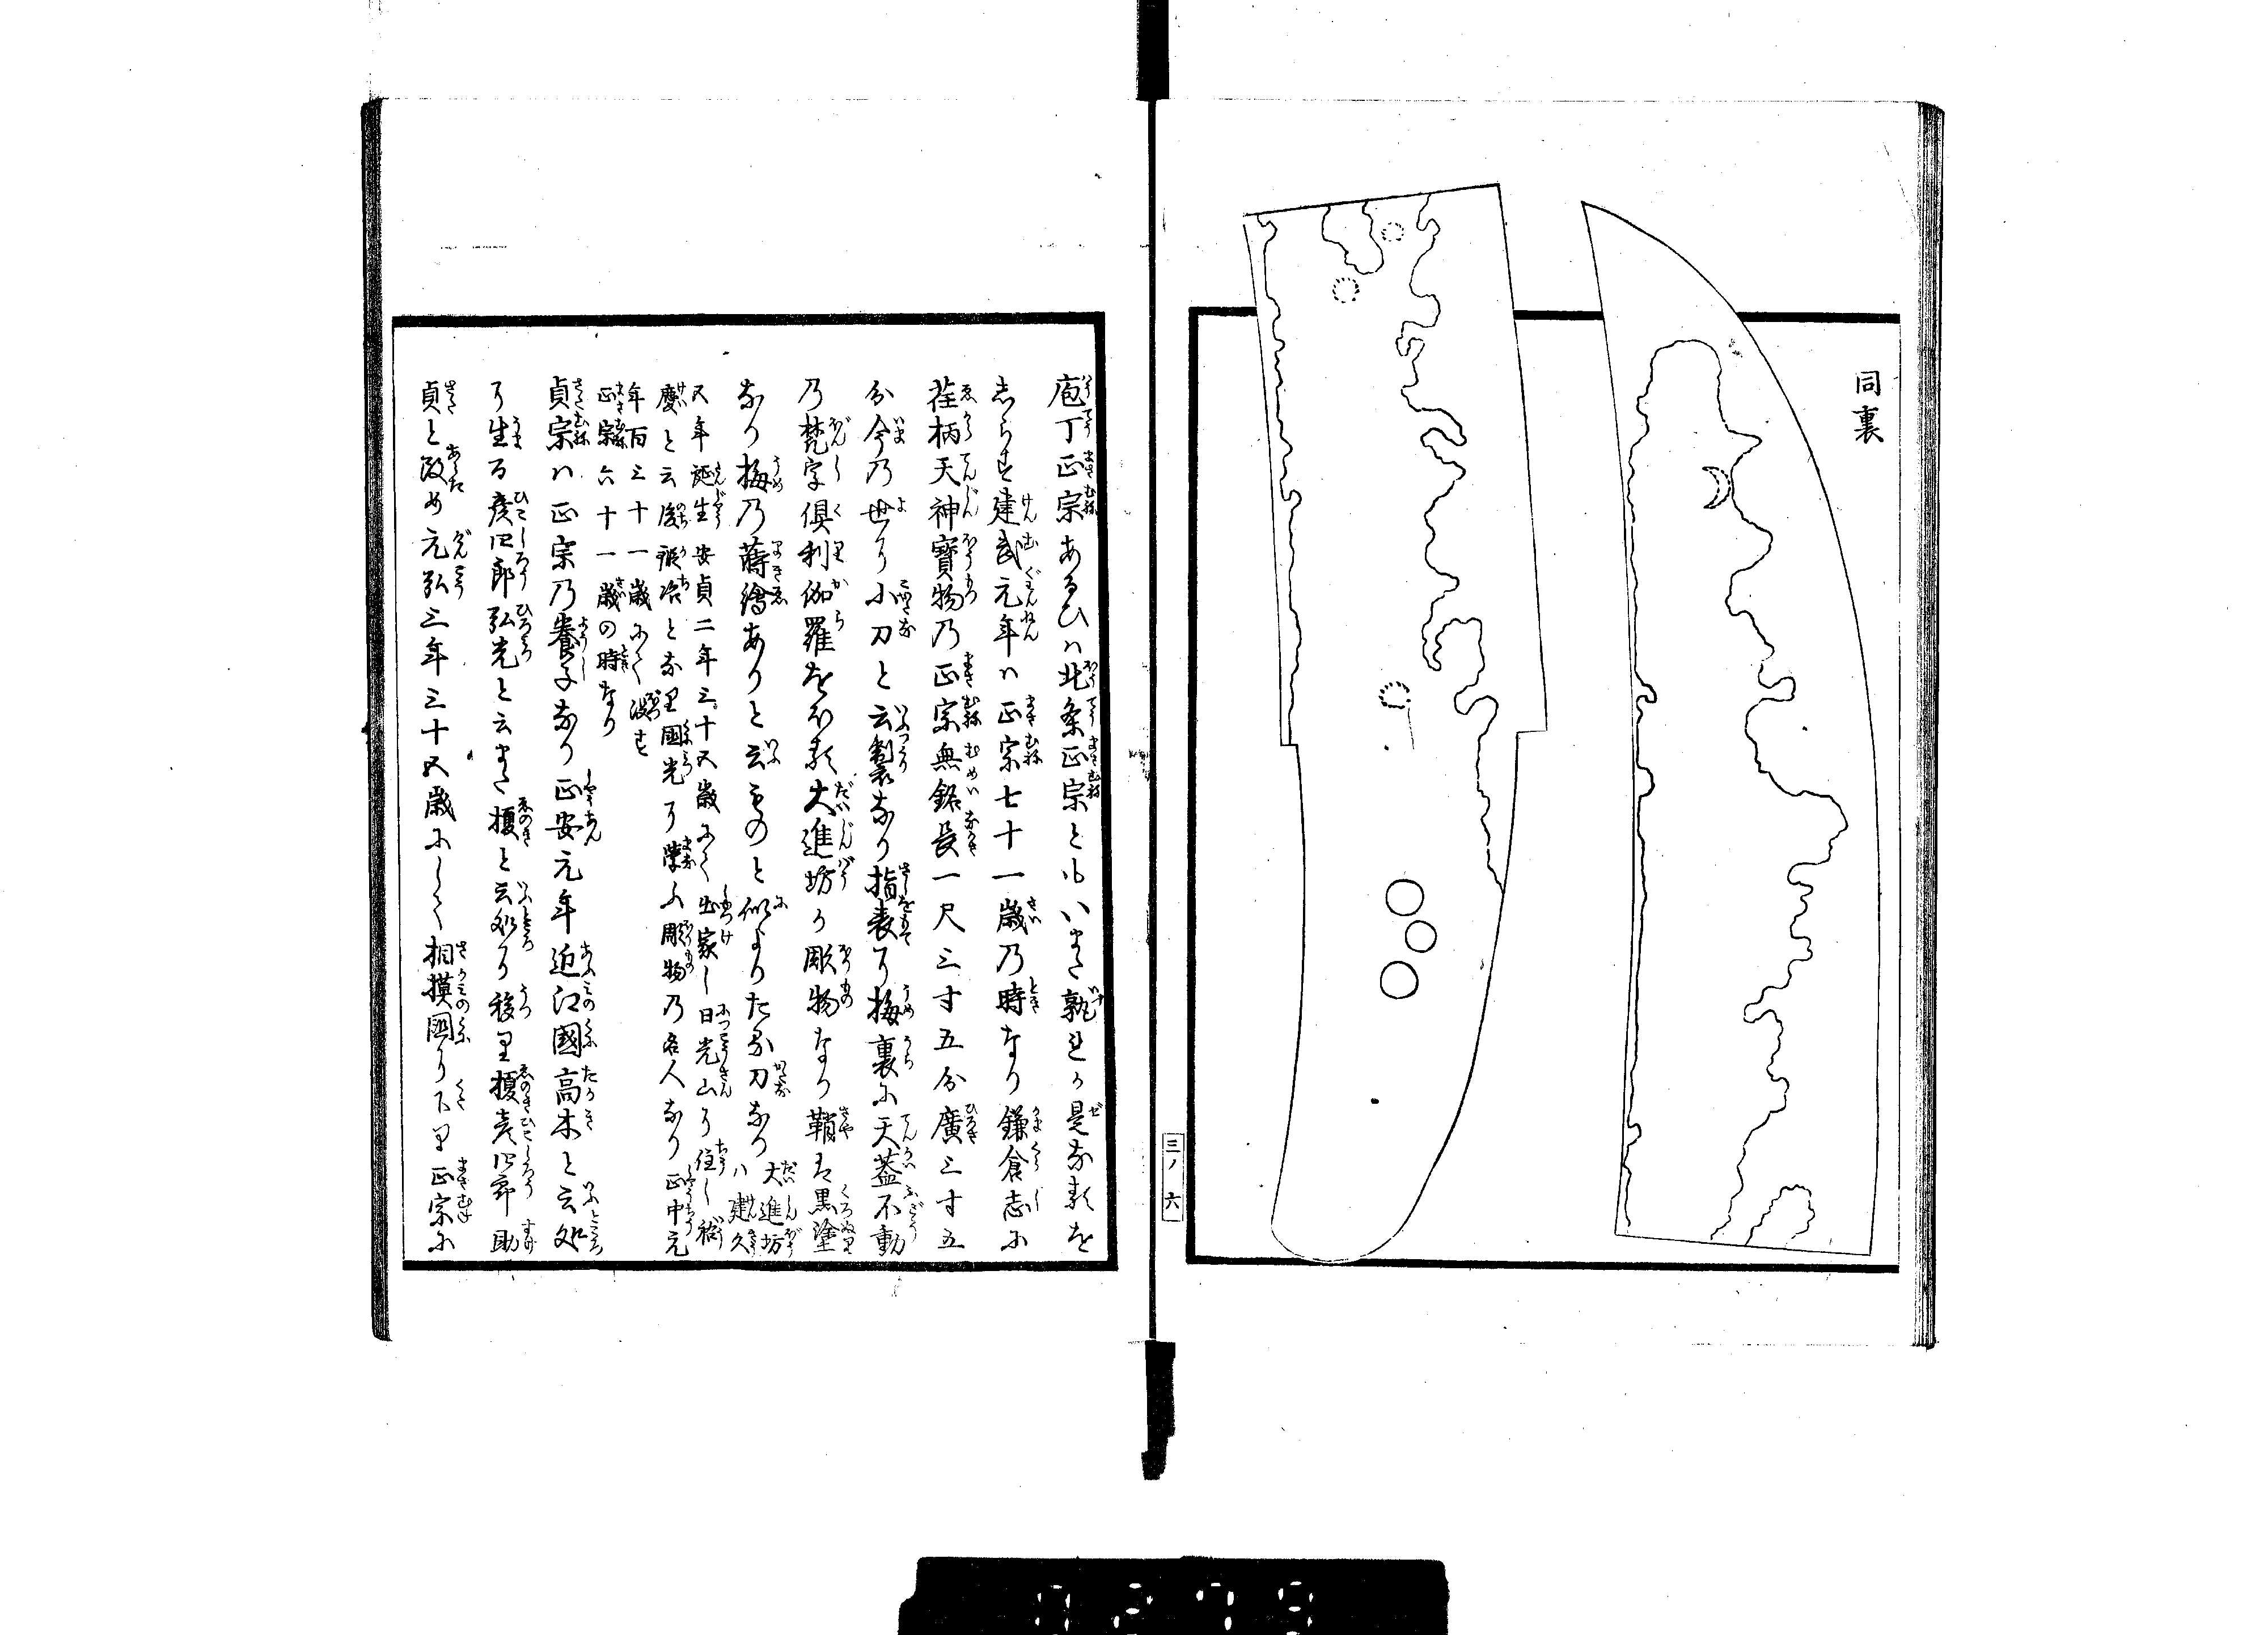 同裏
三ノ六
庖丁正宗あるひハ北条正宗ともいまた孰れか是なるを
しらす建武元年ハ正宗七十一歳乃時なり鎌倉志に
荏柄天神寳物乃正宗無銘長一尺三寸五分廣三寸五
分今乃世に小刀と云製なり指表に梅裏に天蓋不動
乃梵字倶利伽羅をほる大進坊か彫物なり鞘は黒塗
なり梅乃蒔繪ありと云ものと似よりたる刀なり
大進坊
ハ建久
五年誕生安貞二年三十五歳にて出家し日光山に住し祐
慶と云後鍛冶となり國光に学ふ彫物乃名人なり正中元
年百三十一歳にて没す
正宗六十一歳の時なり
貞宗ハ正宗乃養子なり正安元年近江國高木と云処
に生る彦四郎弘光と云また榎と云処に移り榎彦四郎助
貞と改め元弘三年三十五歳にして相摸國に下り正宗に
0279